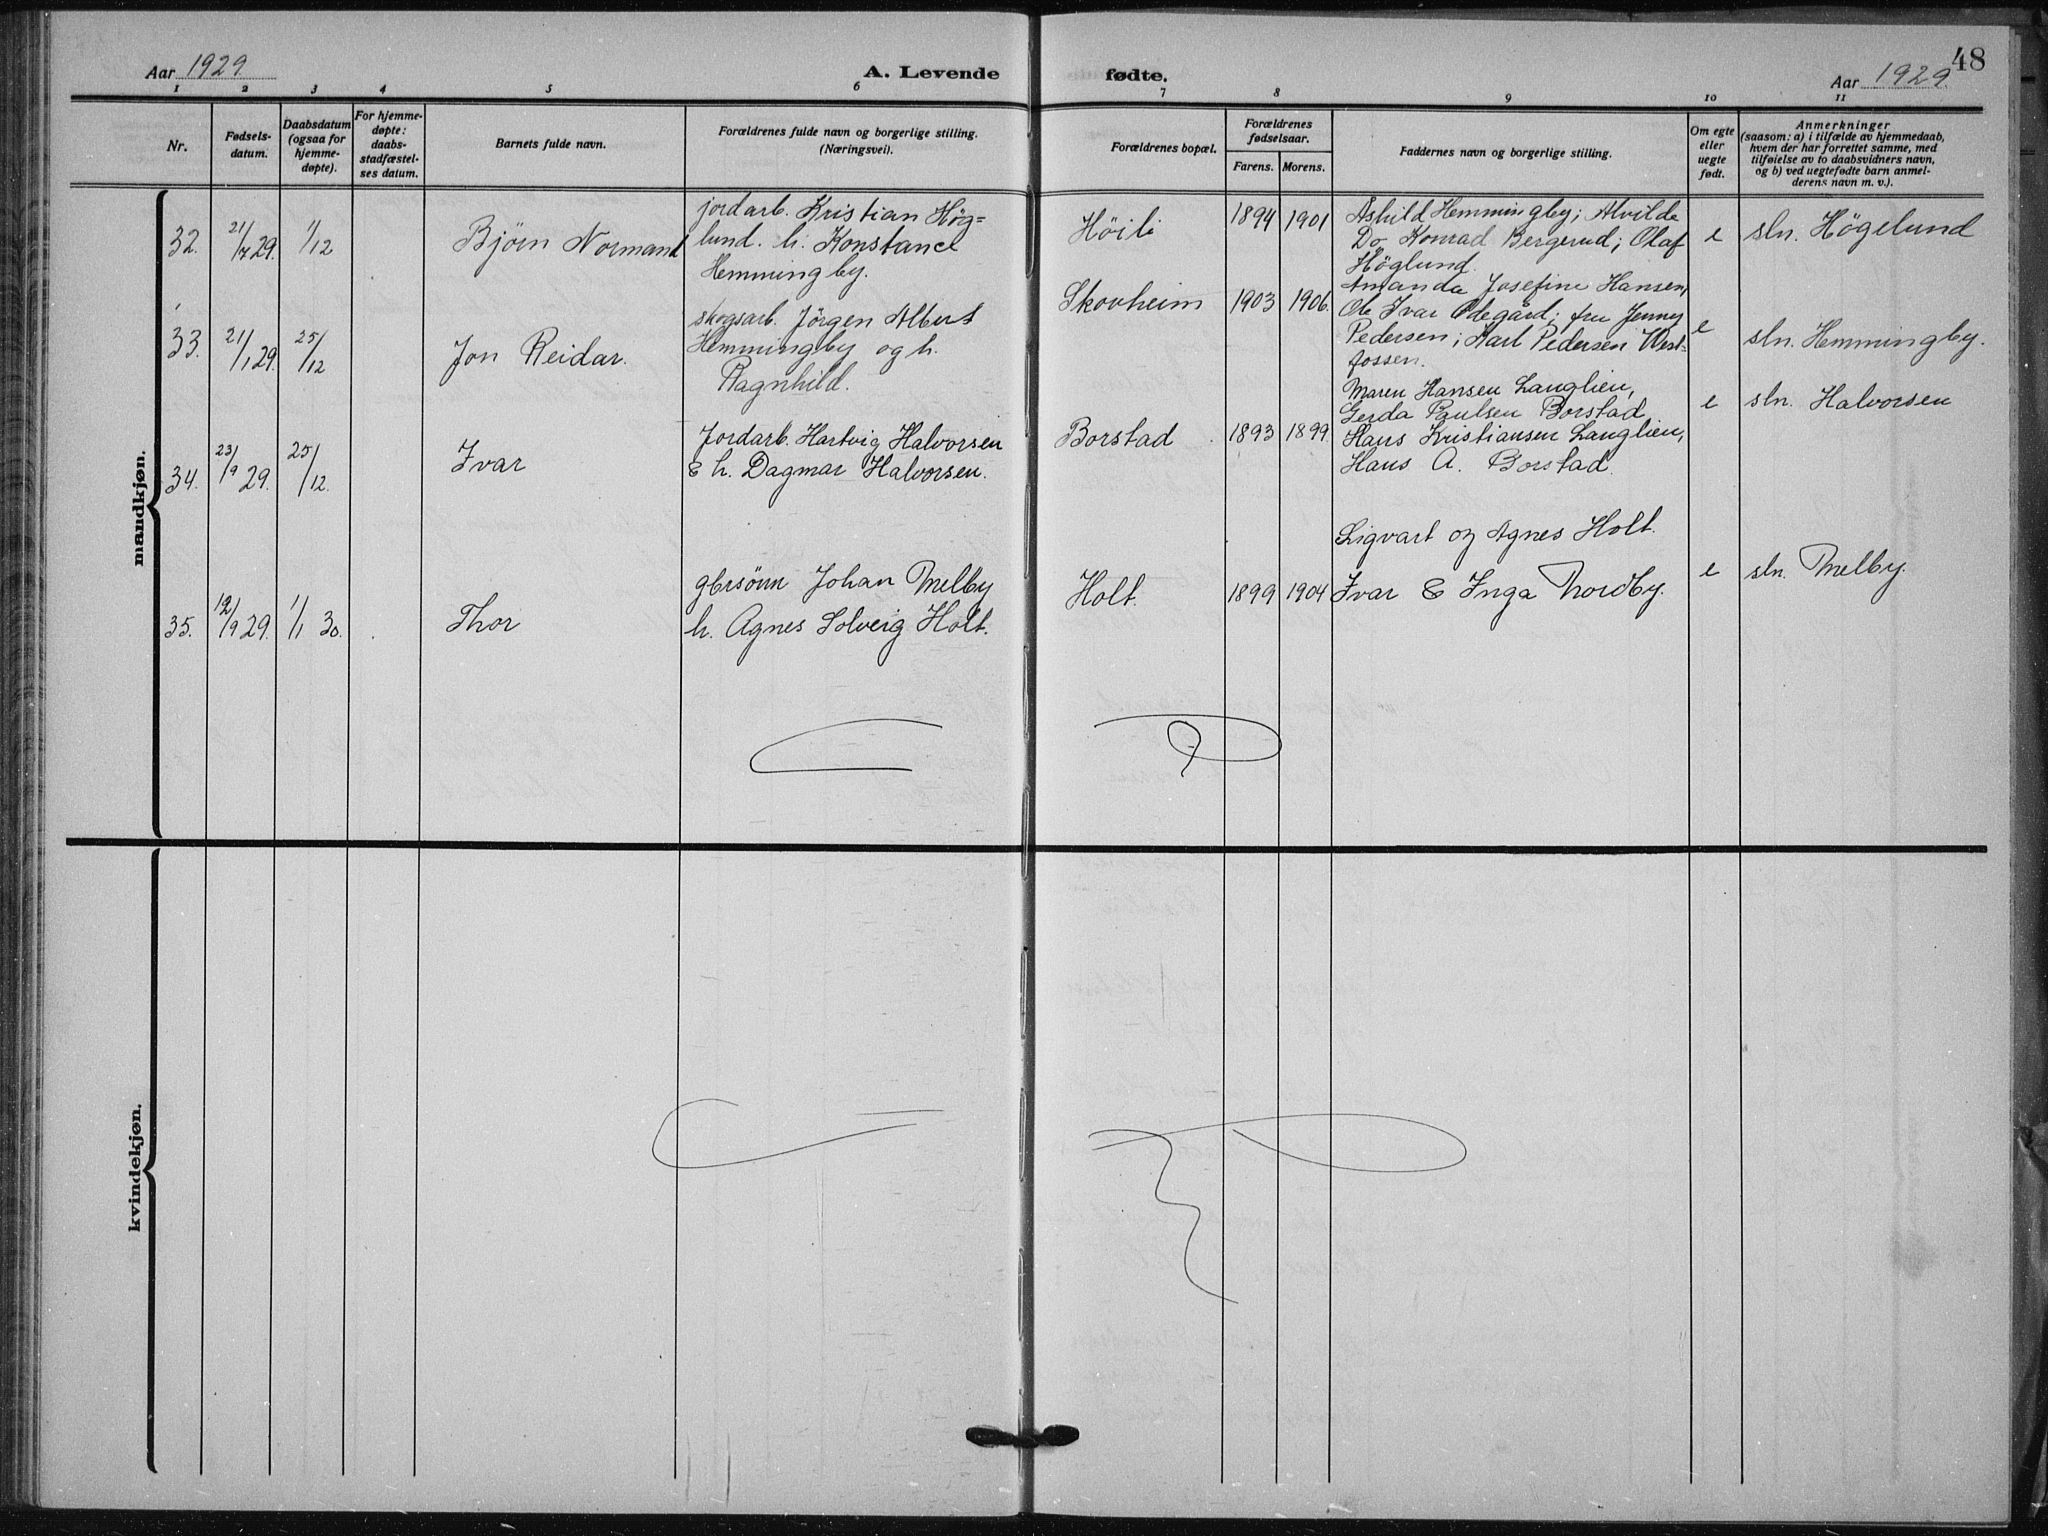 48
Aar 1929
A. Levende
fødte.
Aar 1929.
1 2 3 4 5 6 7 8 9 10 11
Nr.
Fødsels-
datum.
Daabsdatum
(ogsaa for
hjemme-
døpte).
For hjemme-
døpte:
daabs-
stadfæstel-
ses datum.
Barnets fulde navn.
Forældrenes fulde navn og borgerlige stilling.
(Næringsvei).
Forældrenes bopæl.
Forældrenes
fødselsaar.
Farens. Morens.
Faddernes navn og borgerlige stilling.
Om egte
eller
uegte
født.
Anmerkninger
(saasom: a) i tilfælde av hjemmedaab,
hvem der har forrettet samme, med
tilføielse av to daabsvidners navn,
og b) ved uegtefødte barn anmel-
derens navn m. v.).
mandkjøn.
32. 21/7 29. 1/12 Bjørn Normand
jordarb. Kristian Høg-
lund. h. Konstance
Hemmingby.
Høili 1894 1901
Ashild Hemmingby; Alvilde
Do Konrad Bergerud; Olaf
Höglund.
e sln. Högelund
33. 21/1 29. 25/12 Jon Reidar.
skogsarb. Jörgen Albert
Hemmingby og h.
Ragnhild.
Skovheim 1903 1906.
Amanda Josefine Hansen,
Ole Ivar Ødegård; fru Jenny
Pedersen; Karl Pedersen Vest-
fossen.
e sln. Hemmingby.
34. 23/9 29. 25/12. Ivar
Jordarb. Hartvig Halvorsen
& h. Dagmar Halvorsen.
Borstad 1893 1899.
Maren Hansen Langlien,
Gerda Paulsen Borstad
Hans Kristiansen Langlien,
Hans A. Borstad.
e sln. Halvorsen
35. 12/9 29. 1/1 30. Thor
gbrsönn Johan Melby
h. Agnes Solveig Holt.
Holt. 1899 1904
Sigvart og Agnes Holt.
Ivar & Inga Nordby.
e sln. Melby.
kvindekjøn.